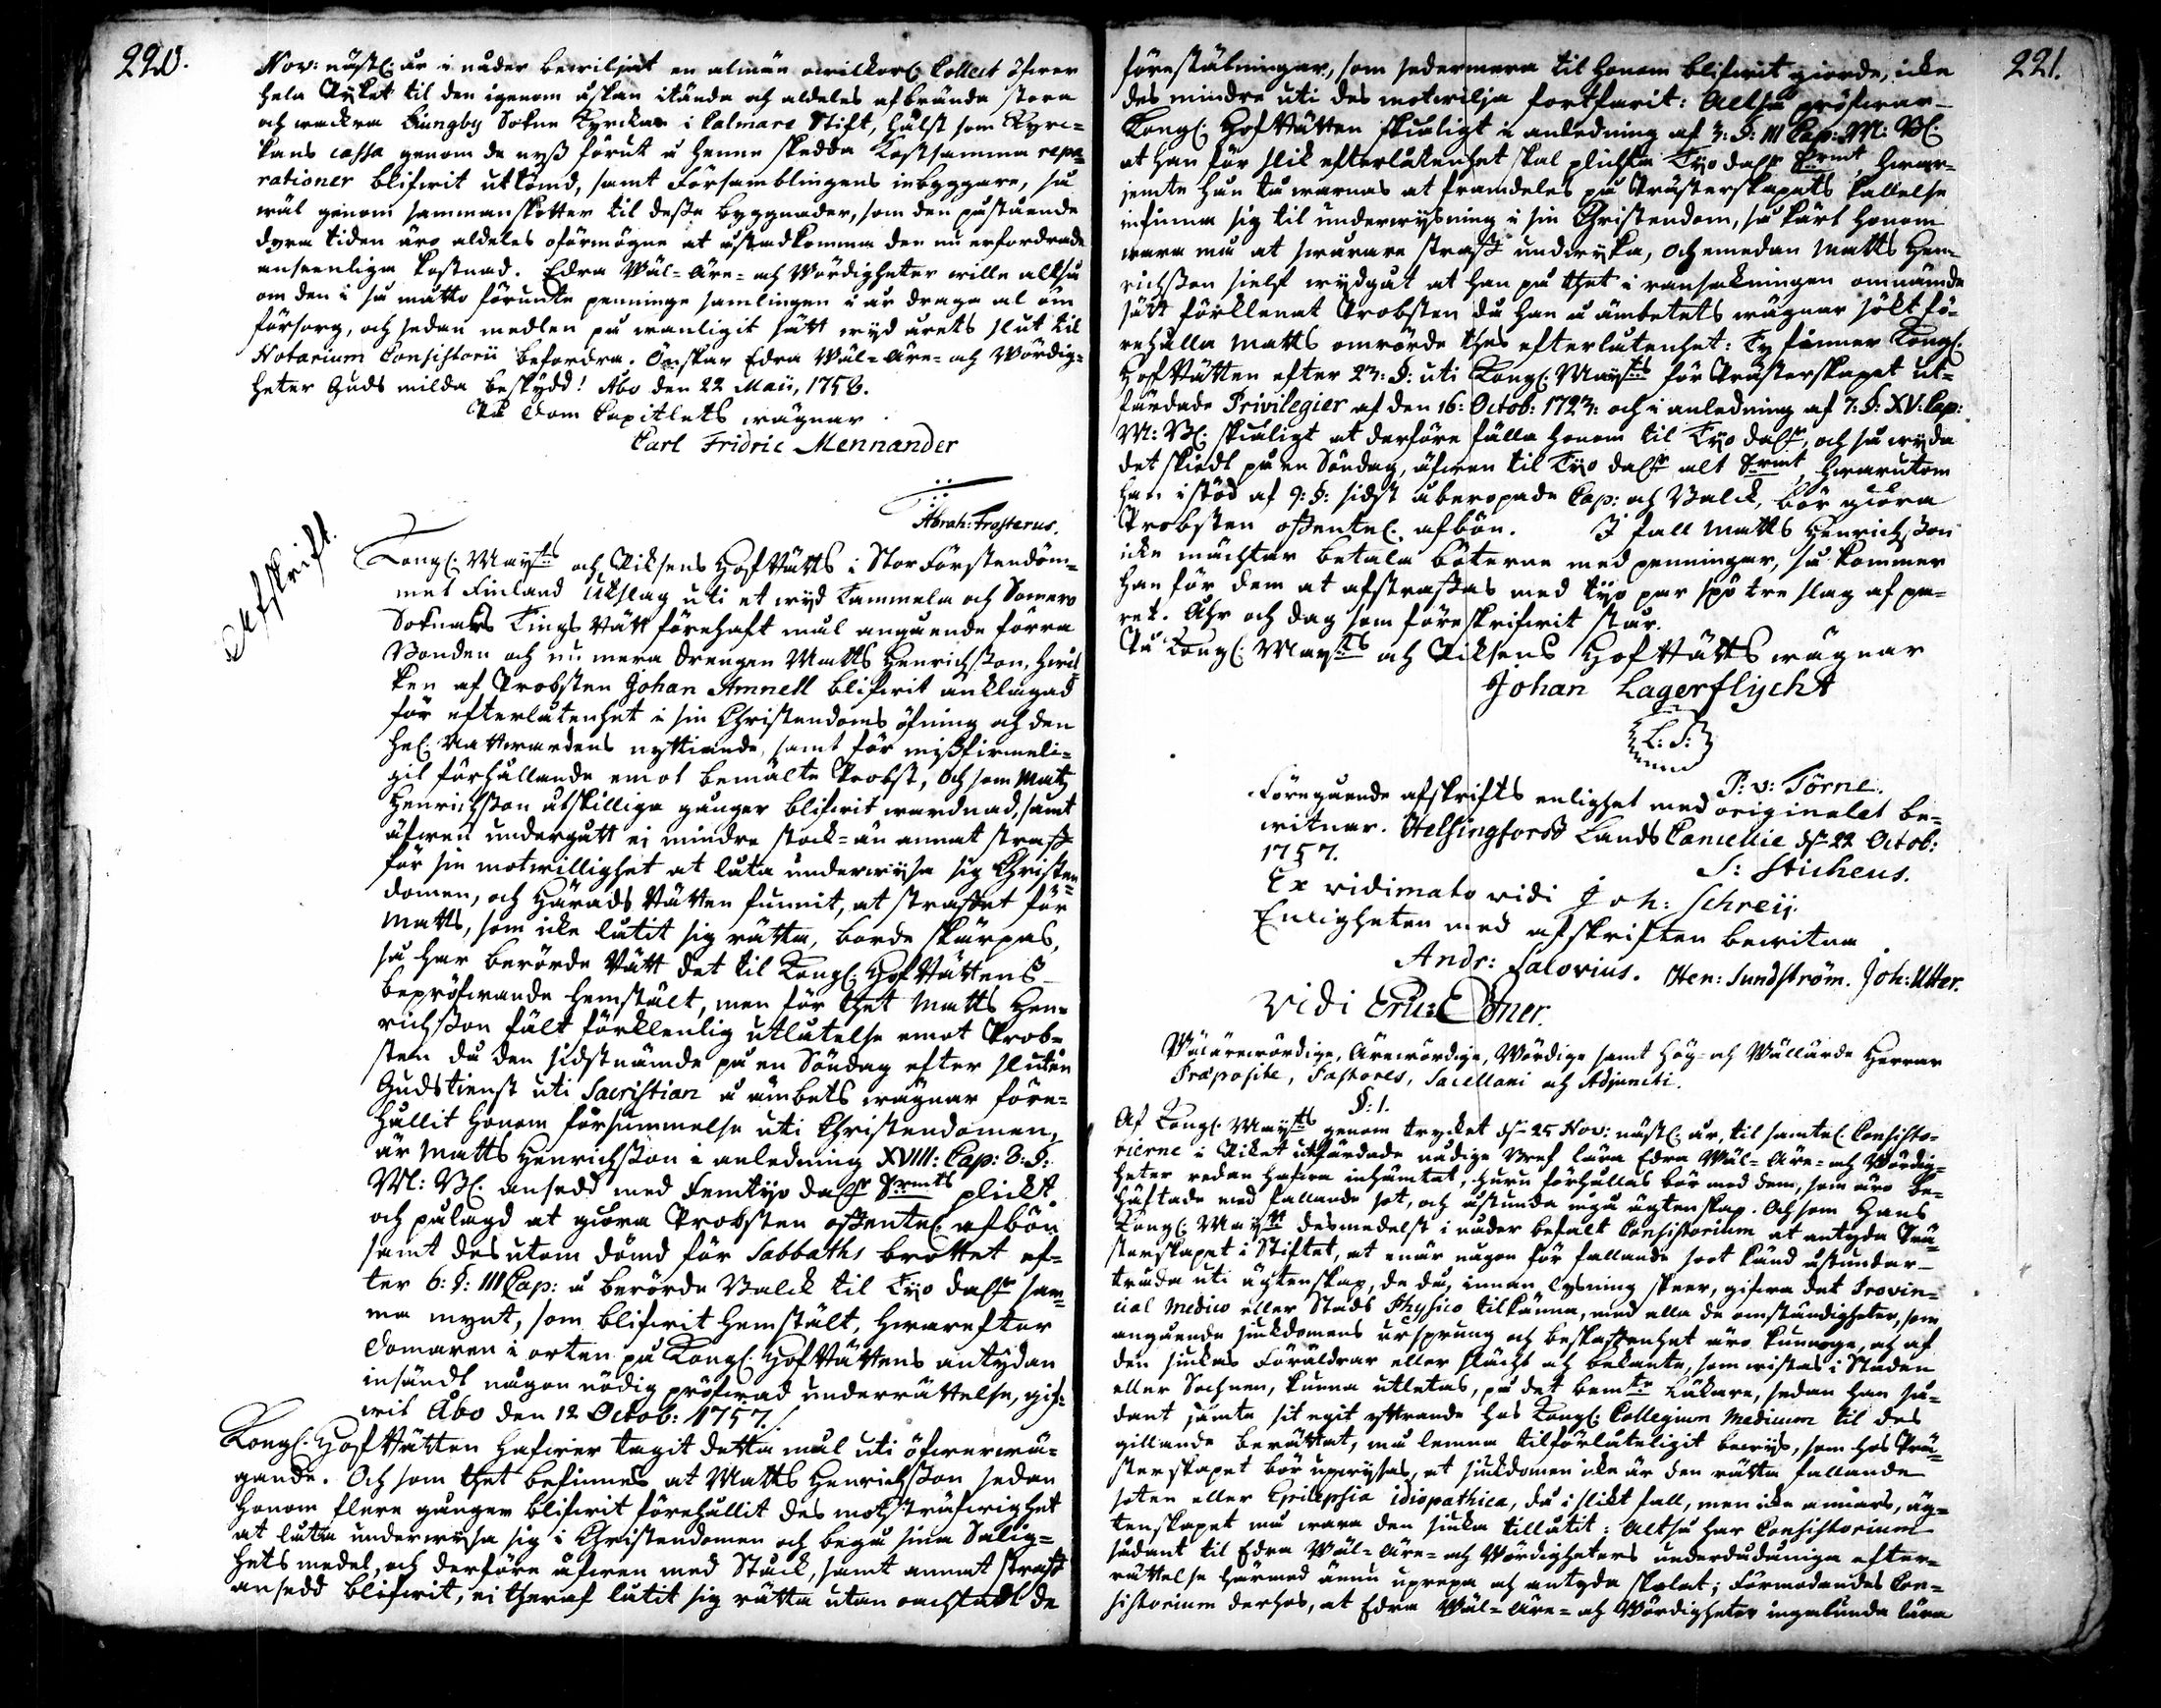 220.
Nov: nästl: år i nåder bewiljat en almän owilkorl: Collect öfwer
hela Ryket til den igenom åskan itända och aldeles afbrända stora
och wackra Liungby Sokne Kyrckan i Calmare Stift, hälst som Kyrc-
kans cassa genom de nyß förut å henne skedda Kostsamma repa-
rationer blifwit uttömd, samt Församblingens inbyggare, så
wäl genom sammanskotter til deße byggnader, som den påstående
dyra tiden äro aldeles oförmögne at åstadkomma den nu erfordrade
ansenliga kostnad. Edra Wäl- Äre- och Wördigheter wille altså
om den i så matto förunte penninge samlingen i år draga al öm
försorg, och sedan medlen på wanligit sätt wyd årets slut til
Notarium Consistorii befordra. Önskar Edra Wäl- Äre- och Wördig-
heter Guds milda beskydd! Åbo den 22 Maii, 1758.
På Dom Capitlets wägnar
Carl Fridric Mennander
Abrah: Frosterus.
Afskrift.
Kongl: Mayts och Riksens HofRätts i StorFörstendöm-
met Finland Utslag uti et wyd Tammela och Somero
Soknars Tings Rätt förehaft mål angående förra
Bonden och nu mera drengen Matts Henrichßon, hwil-
ken af Probsten Johan Amnell blifwit anklagad
för efterlåtenhet i sin Christendoms öfning och den
hel: Nattwardens nyttiande, samt för mißfirmeli-
git förhållande emot bemälte Probst, Och som Matz
Henrichßon åtskillige gånger blifwit wardnad, samt
äfwen undergått ei mindre stock- än annat straff
för sin motwillighet at låta underwysa sig Christen-
domen, och Härads Rätten funnit, at straffet för
Matts, som icke låtit sig rätta, borde skärpas,
så har berörde Rätt det til Kongl: HofRättens
bepröfwande hemstält, men för thet Matts Hen-
richßon fält förklenlig utlåtelse emot Prob-
sten då den sidstnämde på en Söndag efter sluten
Gudstienst uti Sacristian å ämbets wägnar före-
hållit honom försummelse uti Christendomen,
är Matts Henrichßon i anledning XVIII: Cap: 8: §:
M: B: ansedd med Femtyo dalr Srmts plickt
och pålagd at giöra Probsten offentel: afbön
samt des utom dömd för Sabbaths brottet ef-
ter 6: §: III Cap: å berörde Balck til Tyo dalr sam-
ma mynt, som blifwit hemstält, hwarefter
domaren i orten på Kongl: HofRättens antydan
insändt någon nödig pröfwad underrättelse, gif-
wit Åbo den 12 Octob: 1757.
Kongl: HofRätten hafwer tagit detta mål uti öfwerwä-
gande. Och som thet befinnes at Matts Henrichßon sedan
honom flere gånger blifwit förehållit des motsträfwighet
at låta underwysa sig i Christendomen och begå sina Salig-
hets medel, och derföre äfwen med Stock, samt annat straff
ansedd blifwit, ei theraf låtit sig rätta utan oachtadt de
221.
förestälningar, som sedermera til honom blifwit giorde, icke
des mindre uti des motwilja fortfarit: Altså pröfwar
Kongl: HofRätten skiäligt i anledning af 3: §: III Cap: M: B:
at han för slik efterlåtenhet skal plichta Tyo dalr Srmt, hwar-
jemte han tå warnas at framdeles på Prästerskapets kallelse
infinna sig til underwysning i sin Christendom, så kärt honom
wara må at swårare straff undwyka, Och emedan Matts Hen-
richßon sielf wydgåt at han på thet i ransakningen omnämde
sätt förklenat Probsten då han å ämbetets wägnar sökt fö-
rehålla Matts omrörde thes efterlåtenhet: Ty finner Kongl:
HofRätten efter 23: §: uti Kongl: Mayts för Prästerskapet ut-
färdade Privilegier af den 16: Octob: 1723: och i anledning af 7: §: XV: Cap:
M: B: skiäligt at derföre fälla honom til Tyo dalr, och så wyda
det skiedt på en Söndag, äfwen til Tyo dalr alt Srmt, hwarutom
han i stöd af 9: §: sidst åberopade Cap: och Balck, bör giöra
Probsten offentel: afbön. I fall Matts Henrichßon
icke mächtar betala böterne med penningar, så kommer
han för dem at afstraffas med tyo par spö tre slag af pa-
ret. Åhr och dag som föreskrifwit står.
På Kongl: Mayts och Riksens HofRätts wägnar
Johan Lagerflycht
L: S:
P: v: Törne.
Föregående afskrifts enlighet med originalet be-
witnar. Helsingfors Lands Cancellie dn 22 Octob:
1757.
S: Sticheus.
Ex vidimato vidi Joh: Schreij.
Enligheten med afskriften bewitna
Andr: Salovius. Hen: Sundström. Joh: Utter.
Vidi Eric:
Wälärewördige, Ärewördige, Wördige samt Hög- och Wällärde Herrar
Præposite, Pastores, Sacellani och Adjuncti.
§: 1.
Af Kongl: Mayts genom trycket dn 25 Nov: nästl: år, til samtel: Consisto-
rierne i Riket utfärdade nådige Bref lära Edra Wäl- Äre- och Wördig-
heter redan hafwa inhämtat, huru förhållas bör med dem, som äro be-
häftade med fallande sot, och åstunda ingå ägtenskap. Och som Hans
Kongl: Mayt desmedelst i nåder befalt Consistorium at antyda Prä-
sterskapet i Stiftet, at enär någon för fallande soot känd åstundar
träda uti ägtenskap, de då, innan lysning skeer, gifwa det Provin-
cial Medico eller Stads Physico tilkänna, med alla de omständigheter, som
angående siukdomens ursprung och beskaffenhet äro kunnoge, och af
den siukas Föräldrar eller slächt och bekante, som wistas i Staden
eller Sochnen, kunna utletas, på det bemte Läkare, sedan han så-
dant jämte sit egit yttrande hos Kongl: Collegium Medicum til des
gillande berättat, må lemna tilförlåteligit bewys, som hos Prä-
sterskapet bör upwysas, at siukdomen icke är den rätta fallande
soten eller Epilepsia idiopathica, då i slikt fall, men icke annars, äg-
tenskapet må wara den siuka tillåtit: Altså har Consistorium
sådant til Edra Wäl- Äre- och Wördigheters underdådåniga efter-
rättelse härmed ännu uprepa och antyda skolat; Förmodandes Con-
sistorium derhos, at Edra Wäl- Äre- och Wördigheter ingalunda lära